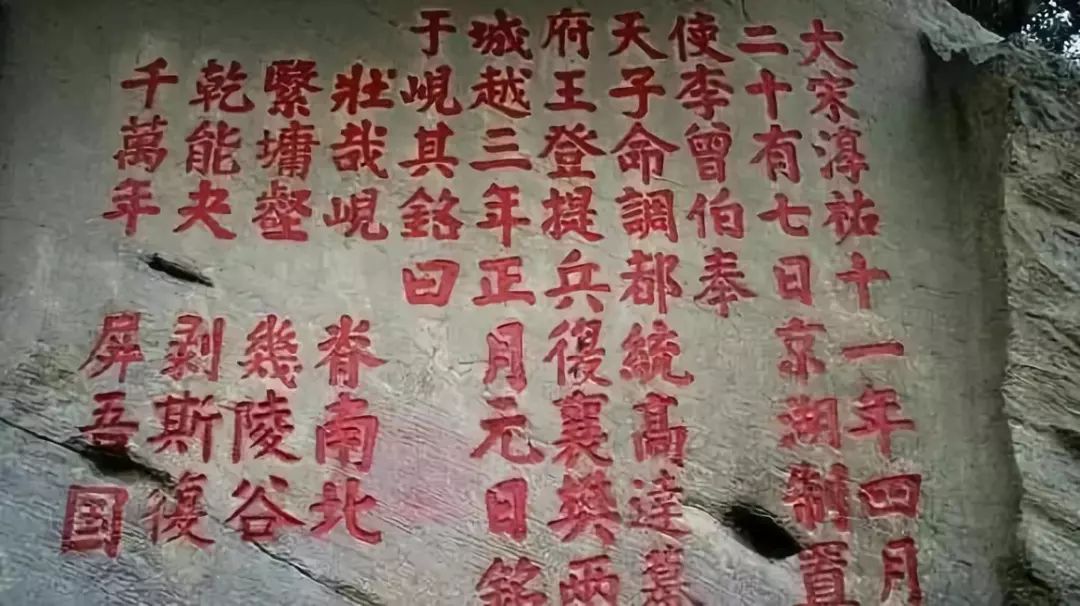 大宋淳祐十一年四月
二十有七日京湖制置
使李曾伯奉
天子命調都統髙達幕
府王登提兵復襄樊兩
城越三年正月元日銘
于峴其銘曰
壯哉峴 脊南北
繄墉壑 幾陵谷
乾能夬 剥斯復
千萬年 屏吾国